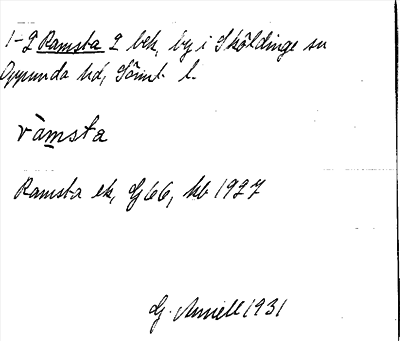 1-2 Ramsta 2 bek, by i Sköldinge sn
Oppunda hd, Sörml. l.
ràmsta
Ramsta ek, Gj 66, kb 1927
G. Annell 1931